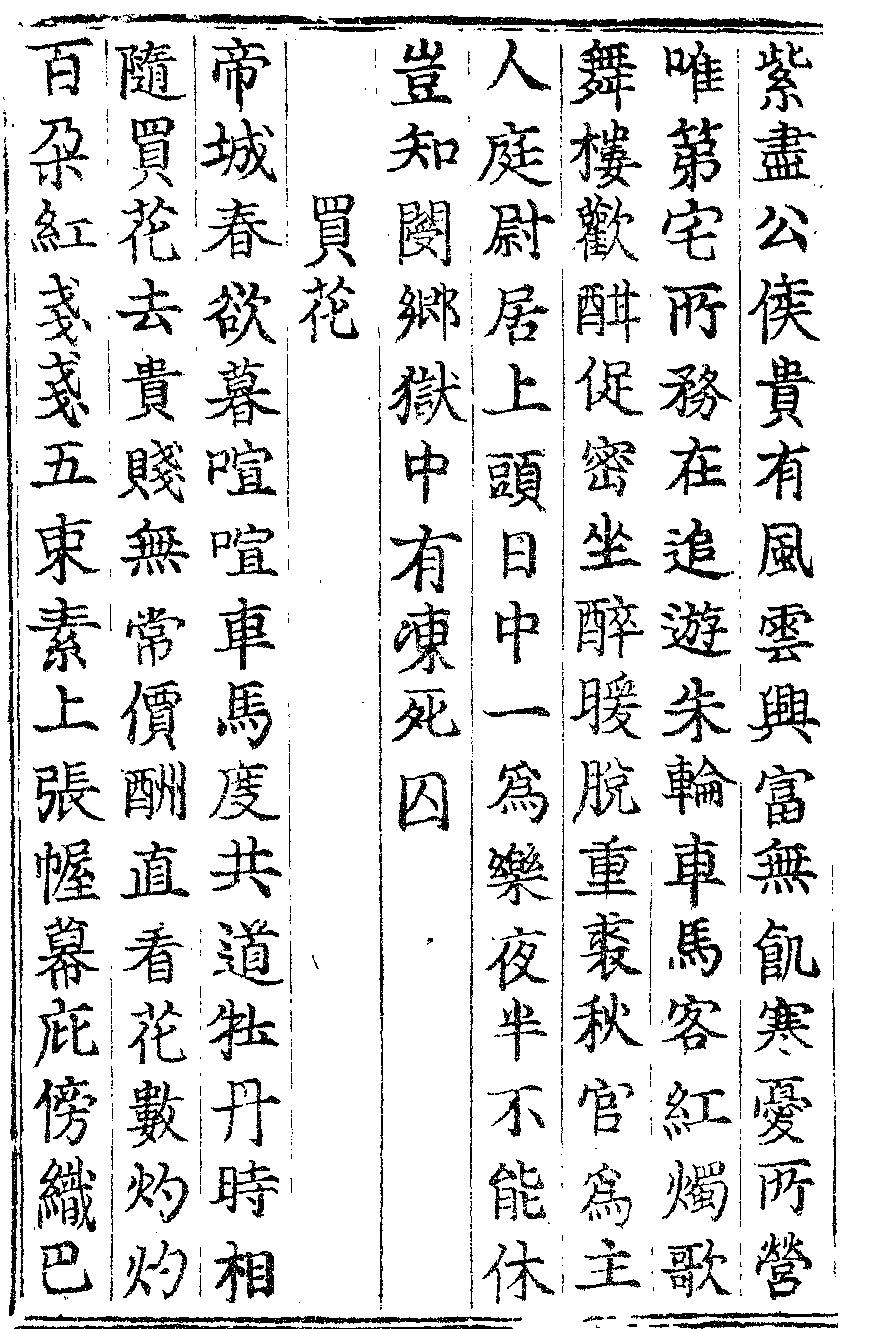 紫盡公侯貴有風雲興富無飢寒憂所營
唯第宅所務在追遊朱輪車馬客紅燭歌
舞樓歡酣促密坐醉暖脫重裘秋官為主
人庭尉居上頭日中一為樂夜半不能休
豈知閿鄉獄中有凍死囚
買花
帝城春欲暮喧喧車馬度共道牡丹時相
隨買花去貴賤無常價酬直看花數灼灼
百朶紅戔戔五束素上張幄幕庇傍織巴